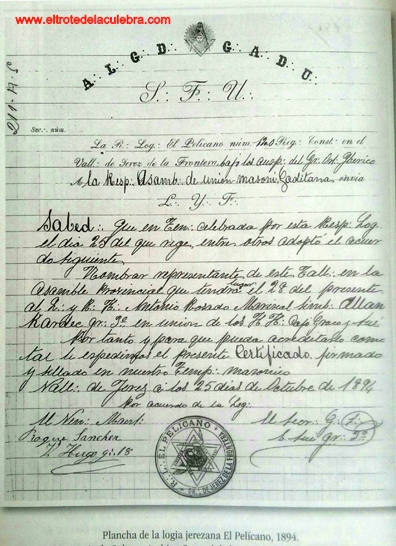 www.eltrotedelaculebra.com
A.·. L.·. G.·. D.·. G.·. A.·. D.·. U.·.
S.·. F.·. U.·.
Sec. núm.
La R.·. Log.·. El Pelicano núm. 120 Reg.·. Const.·. en el
Vall.·. de Jerez de la Frontera, bajo los Ausp.·. del Gr.·. Ort. Yberico
á la Resp. Asamb. de union masoni. Gaditana envia
L.·. Y.·. F.·.
Sabed.·. Que en Ten.·. celebrada por esta Resp.·. Log.
el dia 23 del que rige, entre otros adoptó el acuer
do siguiente
Nombrar representante de este Tall.·. en la
Asamblea Provincial que tendrá lugar el 28 del presente
al Q.·. y R.·. H.·. Antonio Rosado Mariscal simb. Allan
Kardec gr.·. 3º en union de los H.·. H.·.
Por tanto y para que pueda acreditarlo como
tal le expedimos el presente Certificado, firmado
y sellado en nuestro Temp.·. masonico
Vall.·. de Jerez á los 25 dias de Octubre de 1894
Por acuerdo de la Log.·.
El Ven.·. Maest.·.
El Secr.·. G.·. S.·.
Sanchez
V. Hugo gr.·. 18
EL PELICANO
VALL. DE JEREZ DE LA FRONTERA
Plancha de la logia jerezana El Pelícano, 1894.